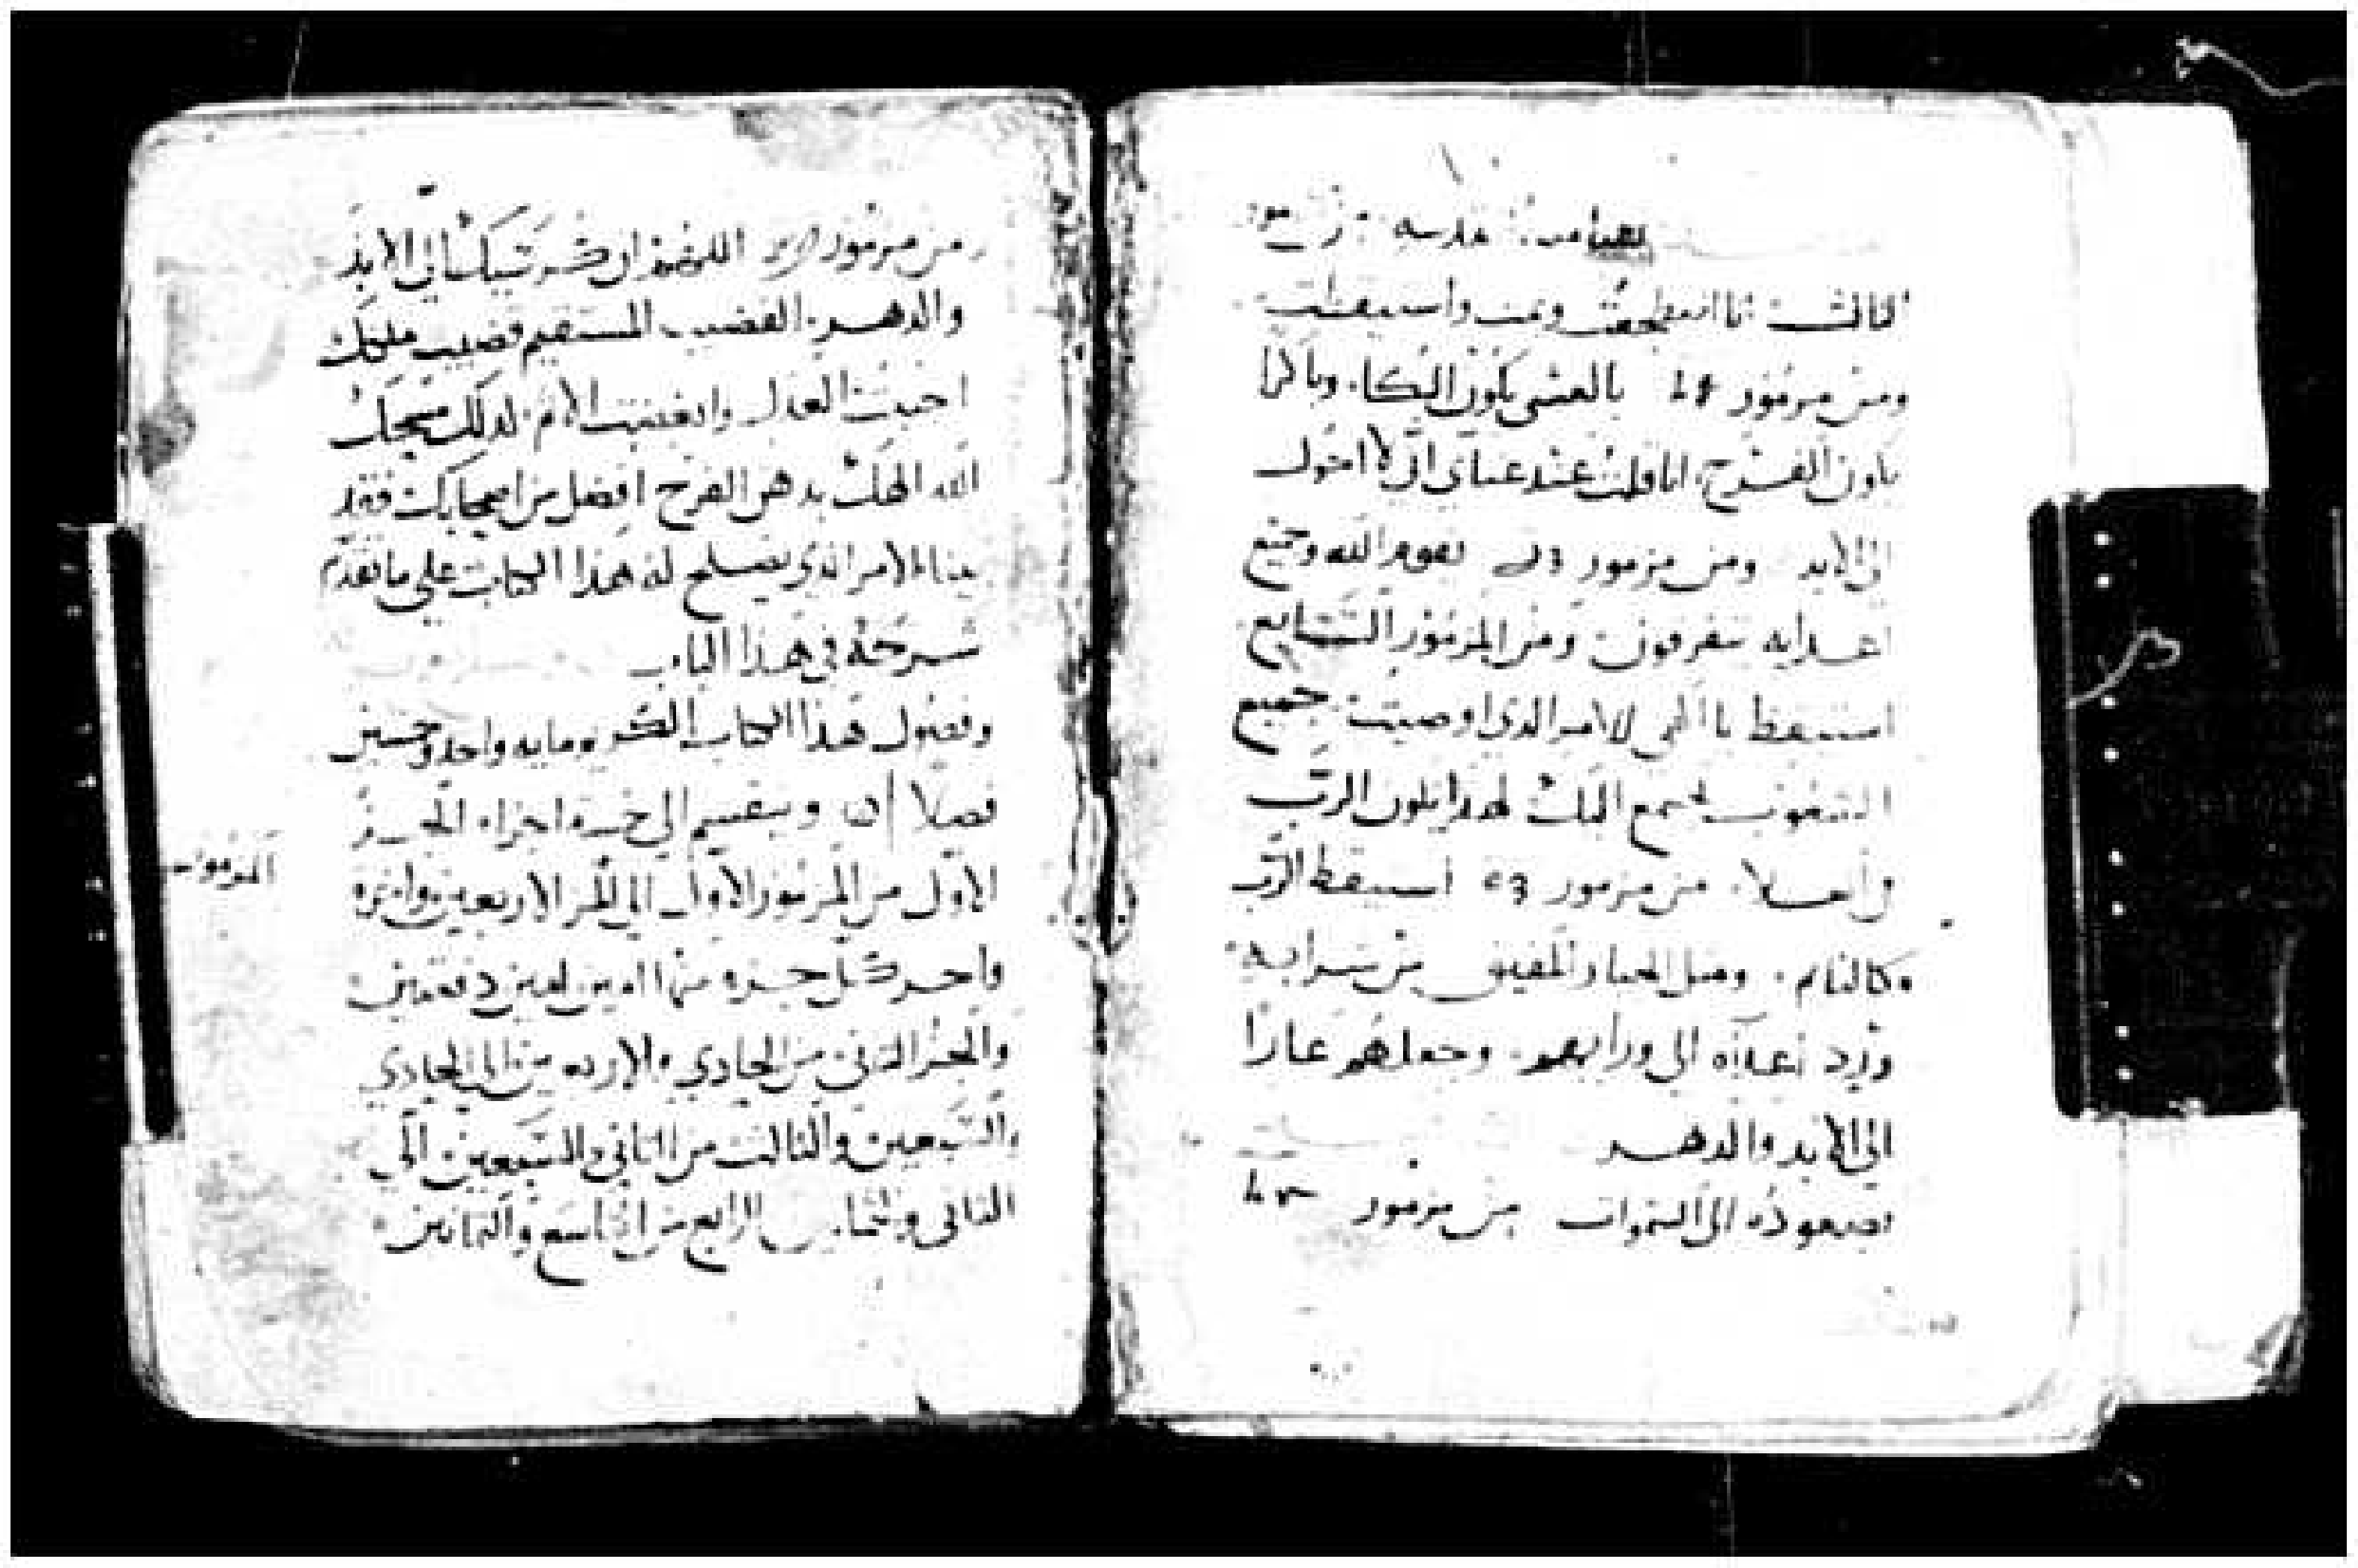 لقيامته المقدسه من مزمور
الثالث انا اضطجعت ونمت واستيقظت
ومن مزمور بالعشي يكون البكا. وباكرا
يكون الفرح، انا قلت عند غناي اني لا احول
الى الابد ومن مزمور يقوم الله وجميع
اعدايه يتفرقون ومن المزمور السابع
استيقظ يا الهي للامر الذي اوصيت جميع
الشعوب لهذا يكون الرب
في العلا، من مزمور استيقظ الرب
كالنايم. ومثل الجبار المفيق من شرابه
ورد اعداه الى ورايهم. وجعلهم عارا
الى الابد والدهر
صعوده الى السموات من مزمور
من مزمور اللهم ان كرسيك الى الابد
والدهر. القضيب المستقيم قضيب ملكك
احببت العدل وابغضت الاثم. لذلك مسحك
الله الهك بدهن الفرح افضل من اصحابك فقد
بينا الامر الذي يصلح له هذا الكتاب على ما تقدم
شرحه في هذا الباب
وفصول هذا الكتاب الكريم مايه واحد وخمسين
فصلا وينقسم الى خمسة اجزاء الجزء
الاول من المزمور الاول الى الاربعين
المزمور
واحد كل جزء منها
والجزء الثاني من الحادي والاربعين الى الحادي
والسبعين والثالث من الثاني والسبعين الى
الثاني والرابع من التاسع والثمانين